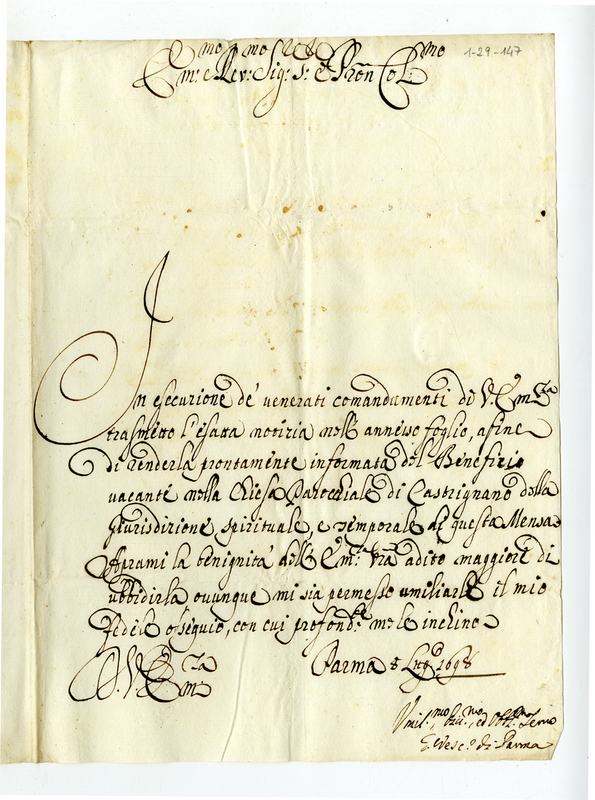 1-29-147
Em:mo e Rev:mo Sig:r S:r e Pron Col:mo
In esecuzione de' venerati comandamenti di V. Em:za
trasmetto l'esatta notizia nell'annesso foglio, afine
di renderla prontamente informata del Benefizio
vacante nella Chiesa Parochiale di Castrignano della
giurisdizione spirituale, e temporale di questa Mensa
Aprami la benignità dell'Em:za Vra adito maggiore di
ubbidirla ovunque mi sia permesso umiliarle il mio
fedele ossequio, con cui profond:te me le inchino
Parma 8 Lug:o 1698
D. V. Em:za
Umil:mo ed Obb:mo Servo
Vesc:o di Parma